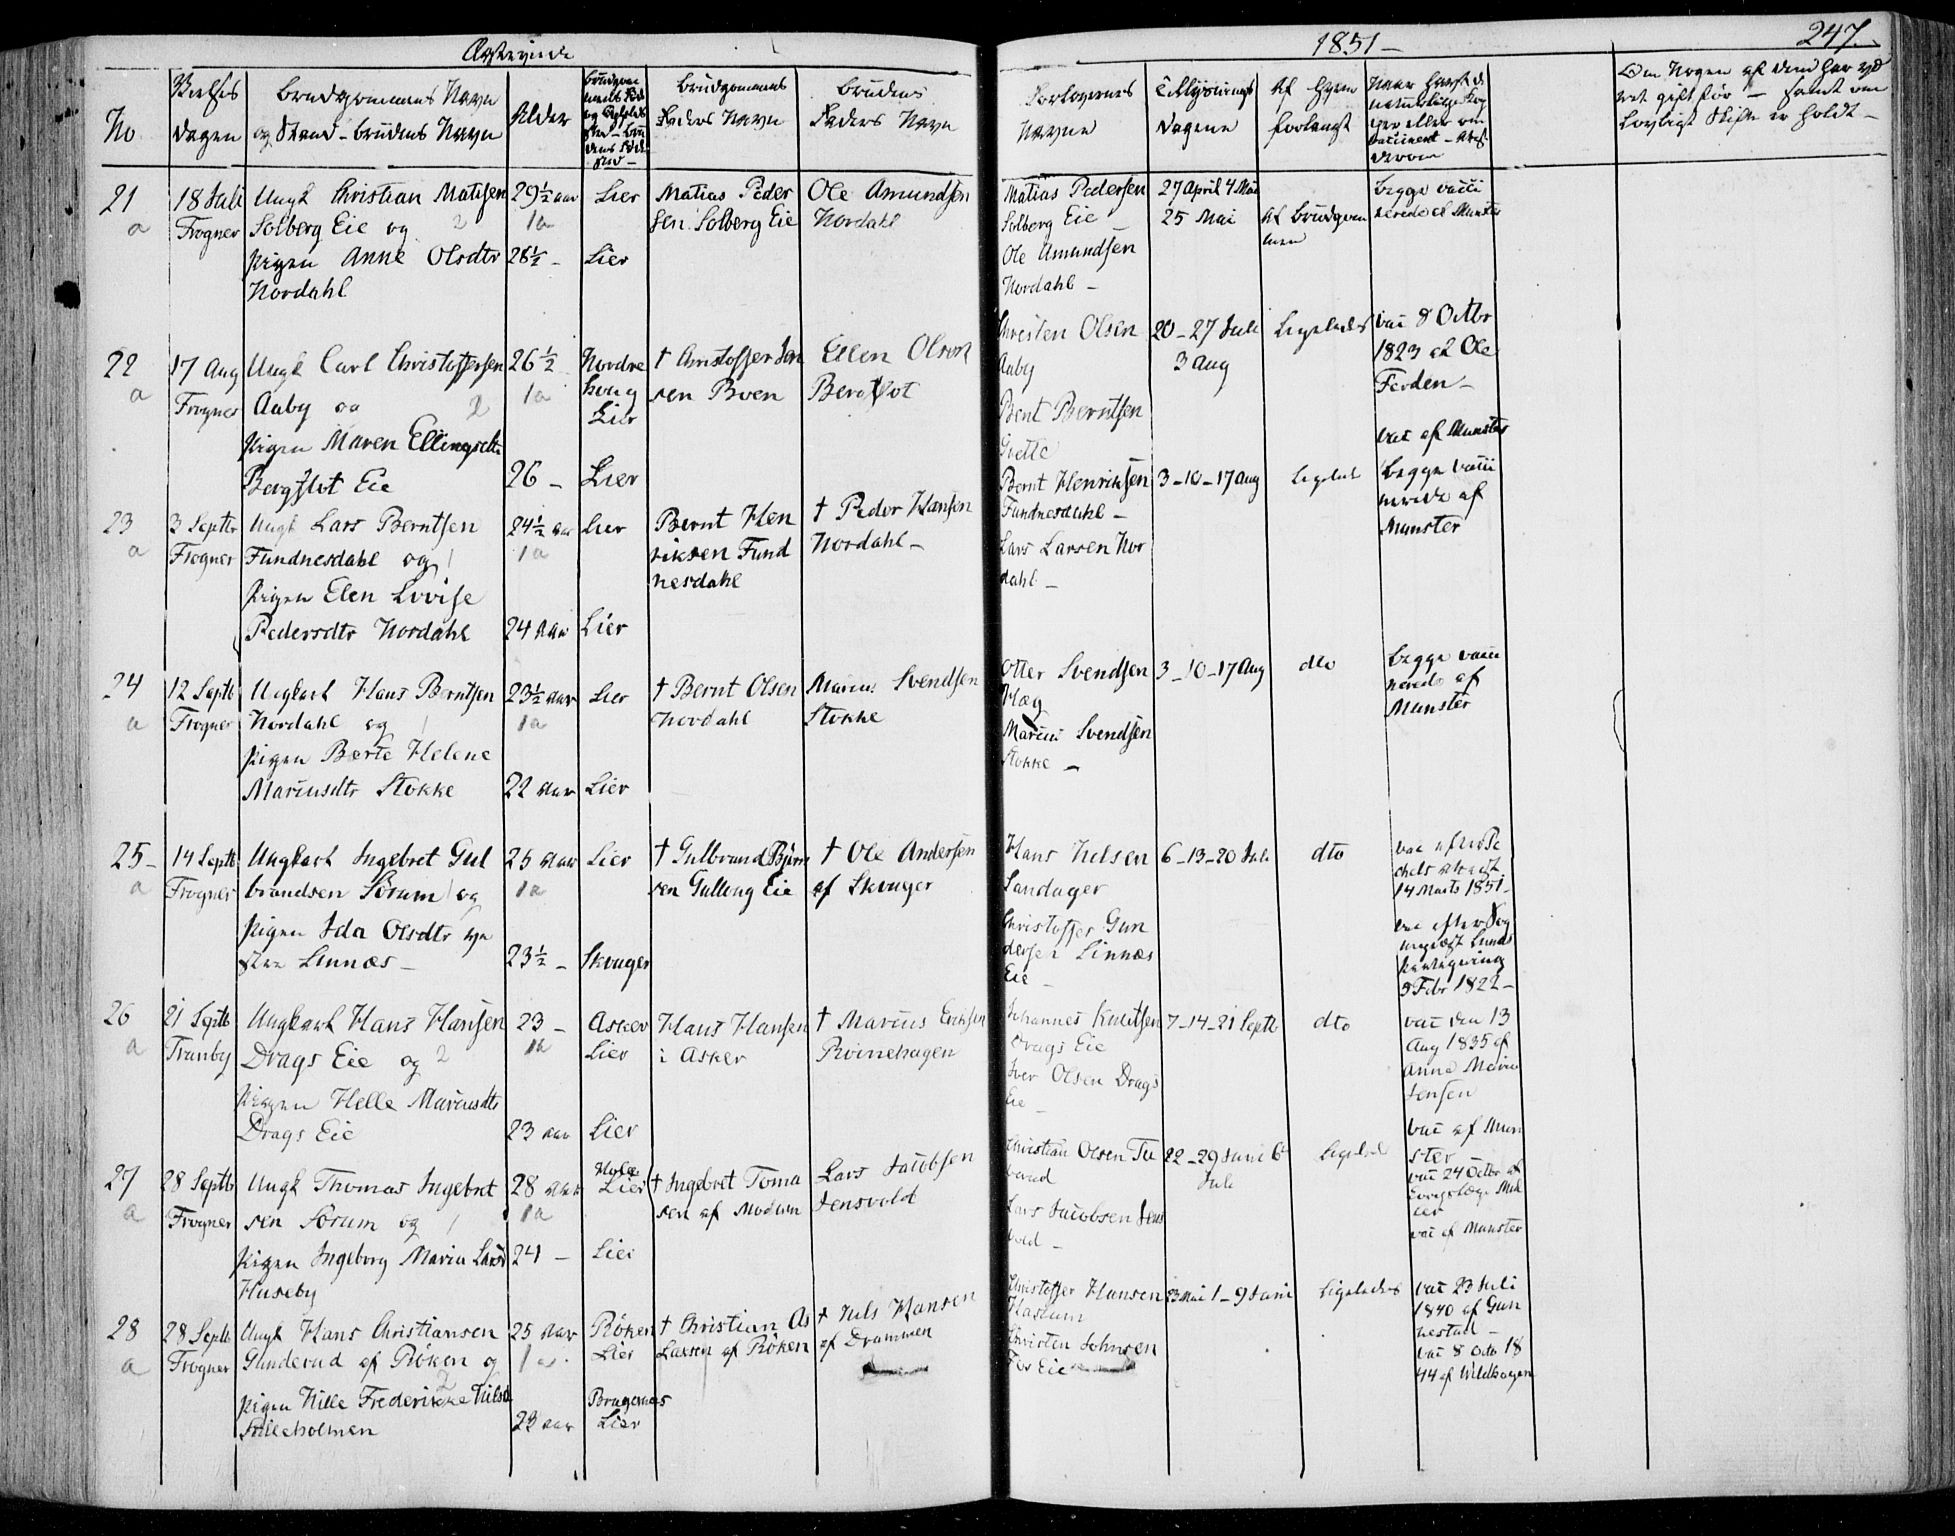 Ægteviede
1851 -
247.
No
Vielses
Dagen
Brudgommens Navn
og Stand - brudens Navn
Alder
Brudgommens
Faders Navn
Brudens
Faders Navn
Forlovernes
Navne
Tillysnings
Dagene
Af hvem
forlangt
Om Nogen af dem har væ
ret gift før - samt om
Lovligt Skifte er holdt -
21
a
18 Juli
Frogner
Ungk Christian Matisen
Solberg Eie og 2
pigen Anne Olsdtr
Nordahl
29½ aar
1a
28½ -
Lier
Lier
Matias Peder
sen Solberg Eie
Ole Amundsen
Nordahl
Matias Pedersen
Solberg Eie
Ole Amundsen
Nordahl -
27 April 4 Mai
25 Mai
Af Brudgom
men
Begge vacci
nerede af Munster
22
a
17 Aug
Frogner
Ungk Carl Christoffersen
Aaby og 2
pigen Maren Ellingsdtr
Bergflot Eie
26½
1a
26 -
Nordre
houg
Lier
Lier
† Christoffer Jen
sen Boen
Ellen Olsen
Bergflot
Christen Olsen
Aaby
Bent Berntsen
20 - 27 Juli
3 Aug
Ligeledes
vac 8 Octbr
1823 af Ole
vac af Munster
23
a
3 Septbr
Frogner
Ungk Lars Berntsen
Fundnesdahl og 1
pigen Elen Lovise
Pedersdtr Nordahl
24½ aar
1a
24 aar
Lier
Lier
Bernt Hen
riksen Fund
nesdahl
† Peder Hansen
Nordahl -
Bernt Henriksen
Fundnesdahl -
Lars Larsen Nor
dahl -
3 - 10 - 17 Aug
Ligeled
Begge vacci
nerede af
Munster
24
a
12 Septb
Frogner
Ungkarl Hans Berntsen
Nordahl og 1
pigen Berte Helene
Marcusdtr Stokke
23½ aar
1a
22 aar
Lier
Lier
† Bernt Olsen
Nordahl
Marcus Svendsen
Stokke
Otter Svendsen
Hæg
Marcus Svendsen
Stokke -
3 - 10 - 17 Aug
dto
Begge vacci
nerede af
Munster
25 -
a
14 Septb
Frogner
Ungkarl Ingebret Gul
brandsen Sørum 1 og
pigen Ida Olsdtr
Linnæs -
25 aar
1a
23½ -
Lier
Skouger
† Gulbrand Bjørn
sen Gulloug Eie
† Ole Andersen
af Skouger
Hans Nilsen
Landager
Christoffer Gun
dersen Linnæs
Eie -
6 - 13 - 20 Juli
dto
14 Marts 1851 -
3 Febr 1822 -
26
a
21 Septb
Tranby
Ungkarl Hans Hansen
Drags Eie og 2
pigen Helle Marcusdtr
Drags Eie
23 -
1a
23 aar
Asker
Lier
Lier
Hans Hansen
i Asker
† Marcus Eriksen
Johannes Knutsen
Drags Eie
Iver Olsen Drags
Eie -
7 - 14 - 21 Septb
dto
vac den 13
Aug 1835 af
Anna Maria
Jensen
vac af Mun
ster
27
a
28 Septbr
Frogner
Ungk Thomas Ingebret
sen Sørum og 1
pigen Ingeborg Maria Larsd
Huseby
28 aar
1a
24 -
Hole
Lier
Lier
† Ingebret Toma
sen af Modum
Lars Jacobsen
Jensvold
Christian Olsen Tu
verud
Lars Jacobsen Jens
vold -
22 - 29 Juni 6
Juli
Ligeled
vac 24 Octbr af
vac af Munster
28
a
28 Septb
Frogner
Ungk Hans Christiansen
Gunderud af Røken og
2
pigen Nille Frederikke Nilsd
Nilleholmen
25 aar
1a.
23 aar
Røken
Lier
Bragernes
Lier
† Christian As
Lassen af Røken
† Nils Hansen
af Drammen
Christoffer Hansen
Haslum
Christen Johnsen
Fos Eie
23 Mai 1 - 9 Juni
Ligeledes
vac 23 Juli
1840 af Gun
nestad -
vac 8 Octo 18
44 af Wildhagen